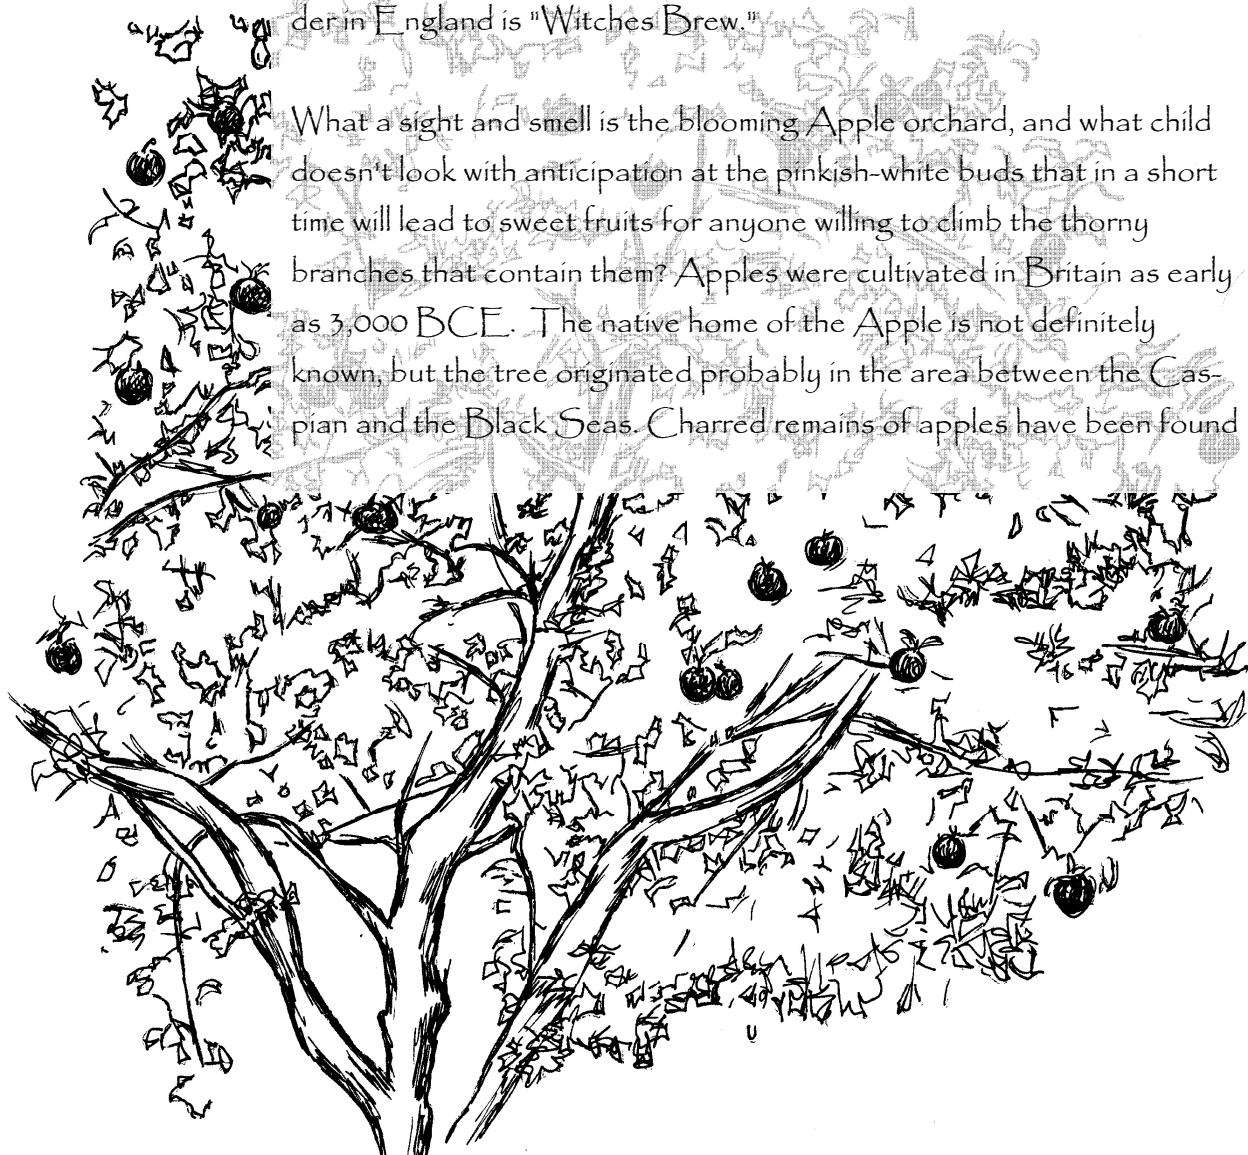 der in England is "Witches Brew."
What a sight and smell is the blooming Apple orchard, and what child
doesn't look with anticipation at the pinkish-white buds that in a short
time will lead to sweet fruits for anyone willing to climb the thorny
branches that contain them? Apples were cultivated in Britain as early
as 3,000 BCE. The native home of the Apple is not definitely
known, but the tree originated probably in the area between the Cas-
pian and the Black Seas. Charred remains of apples have been found